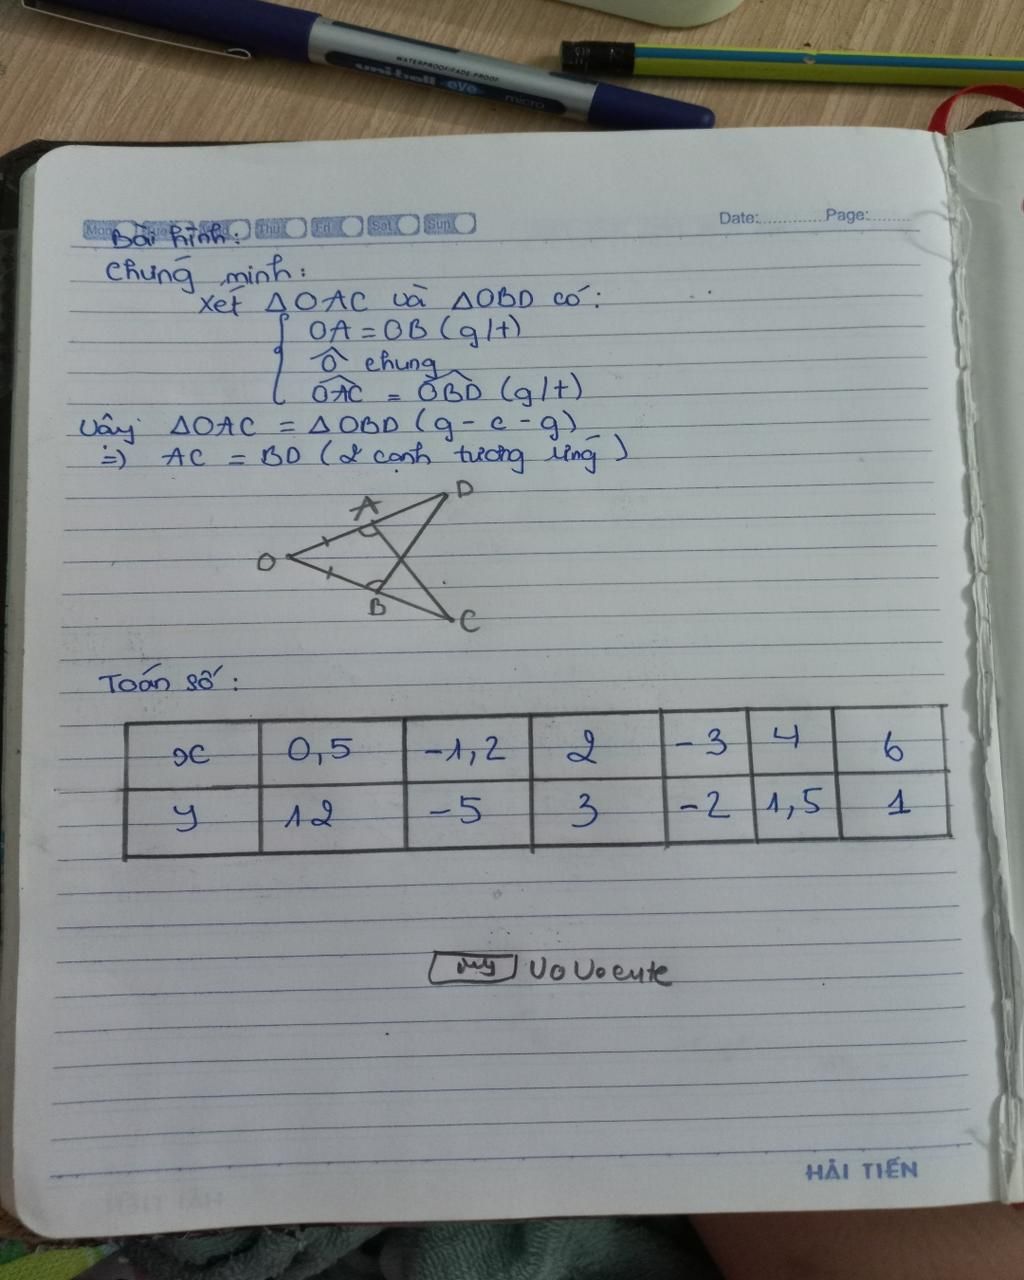 WATERPROOF/FADE-PROOF
uni-ball eye
micro
Date:............Page:........
Mon Thu Fri Sat Sun
Bài hình:
Chứng minh:
Xét ΔOAC và ΔOBD có:
OA = OB (g/t)
Ô chung
OAC = OBD (g/t)
Vậy ΔOAC = ΔOBD (g - c - g)
=> AC = BD (2 cạnh tương ứng)
A D
O
B C
Toán số:
x 0,5 -1,2 2 -3 4 6
y 12 -5 3 -2 1,5 1
my VoVocute
HẢI TIẾN